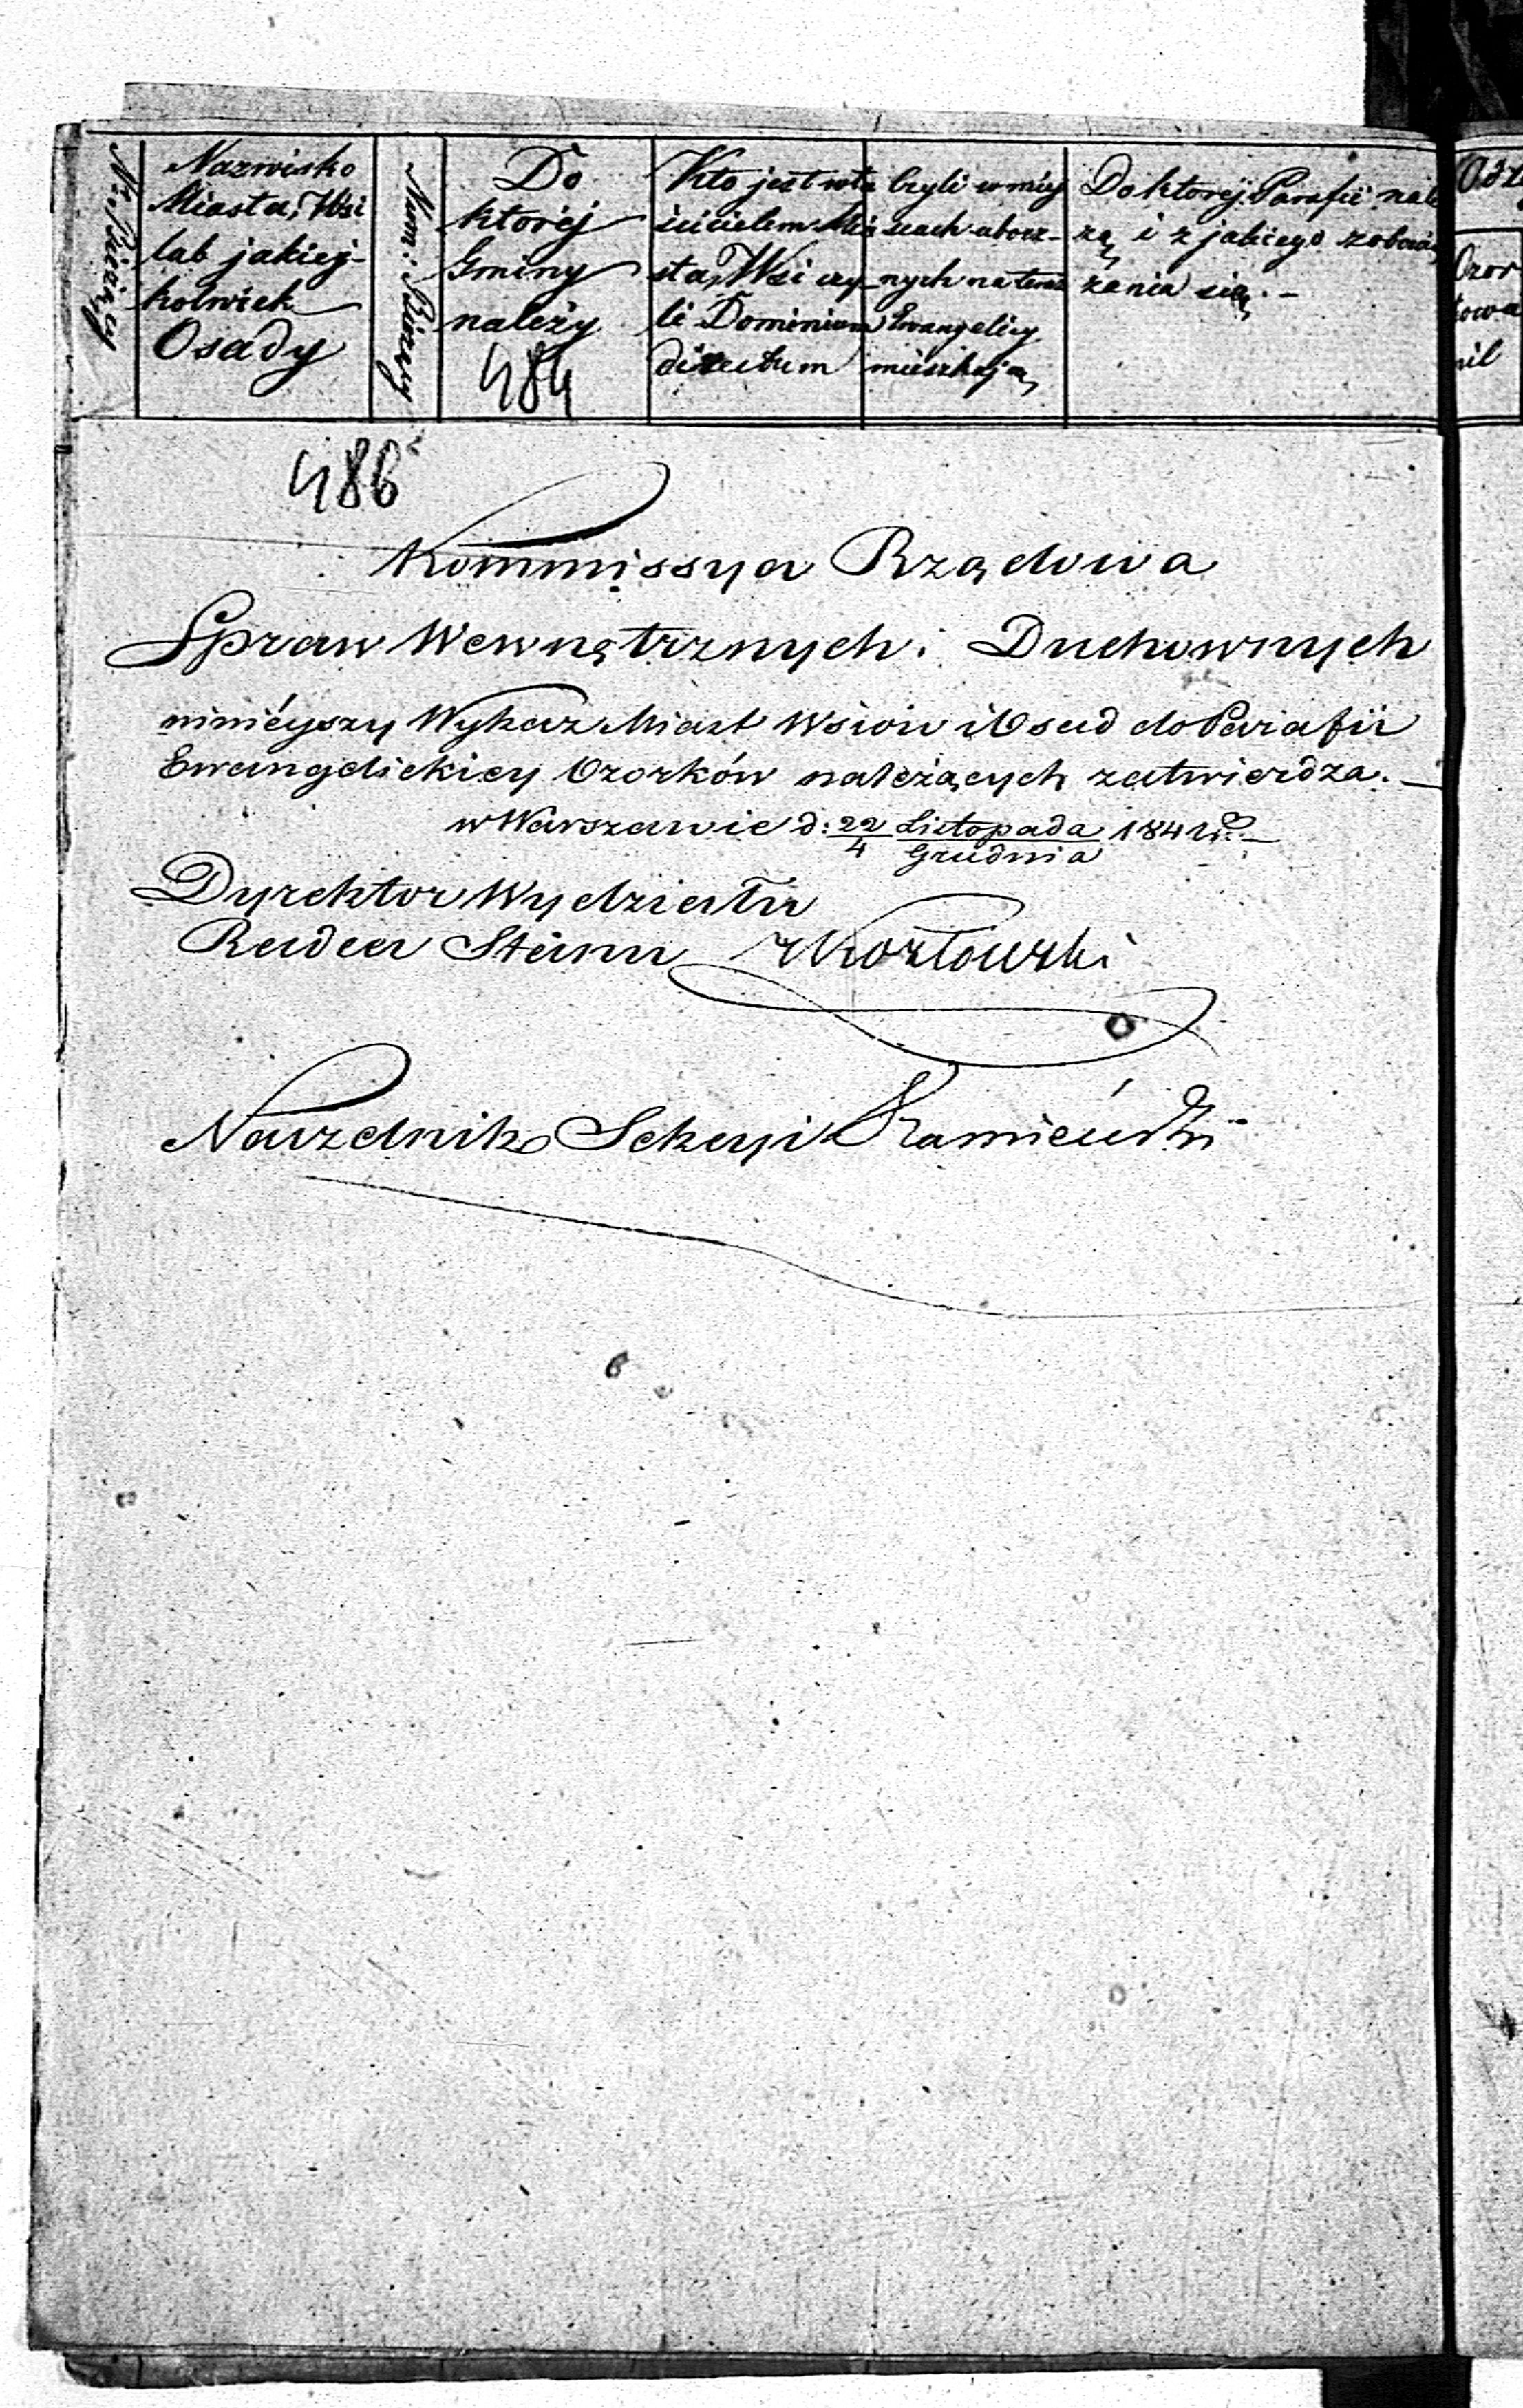 Nr. Bieżący
Nazwisko
Miasta, Wsi
lub jakiej-
kolwiek
Osady
Num: Bieżący
Do
ktorej
Gminy
należy
484
Kto jest wła
ścicielem Mia
sta, Wsi czy
li Dominium
directum
Czyli w miey
scach obocz-
nych na teraz
Ewangelicy
mieszkają
Do ktorej Parafii nale
żą i z jakiego zobowią
zania się.-
486
Kommissya Rządowa
Spraw Wewnętrznych i Duchownych
ninieyszy Wykaz Miast Wsiow i Osad do Parafii
Ewangelickiey Ozorków należących zatwierdza.-
w Warszawie d: 22/4 Listopada/Grudnia 1841 r.-
Dyrektor Wydziału
Radca Stanu Kozłowski
Naczelnik Sekcyi Kamieński
Ozor